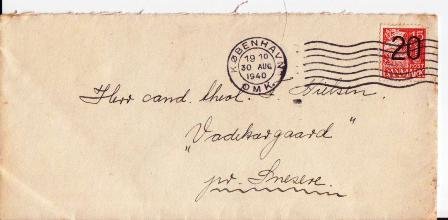 KØBENHAVN
19 10
30 AUG
1940
OMK.
20
15
DANMARK
Herr cand. theol. Nielsen.
"Vadekærgaard"
pr. Snesere.